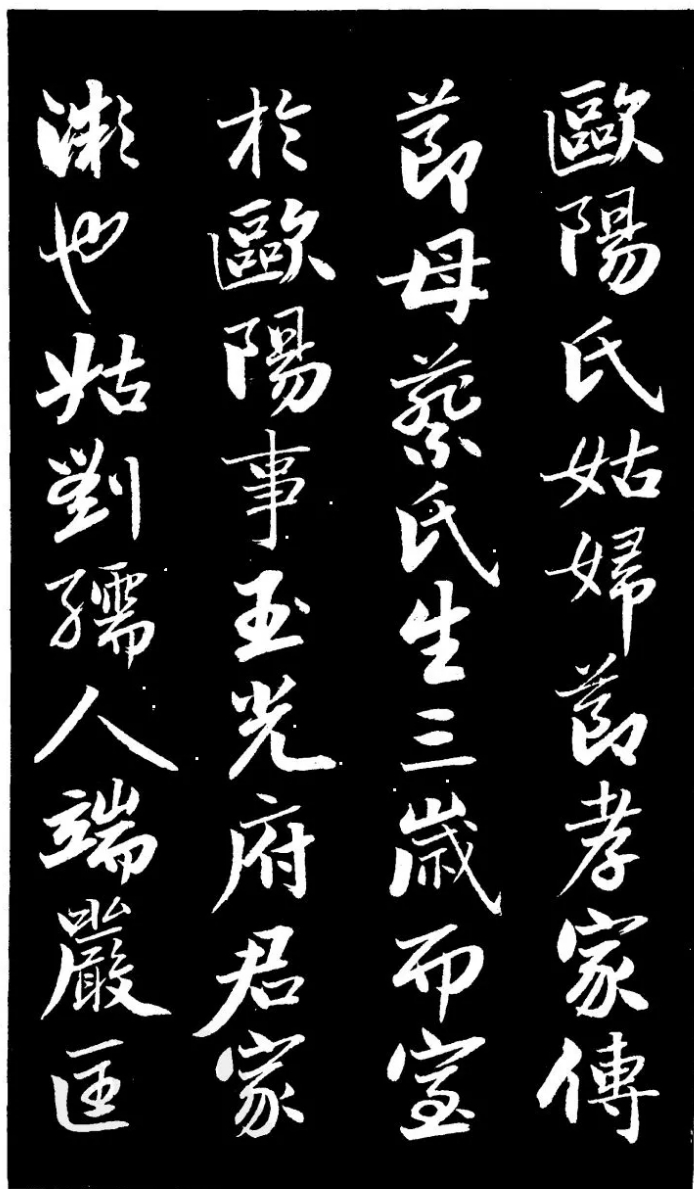 歐陽氏姑婦節孝家傳
節母蔡氏生三歲而室
於歐陽事玉光府君家
漸也姑劉孺人端嚴匡